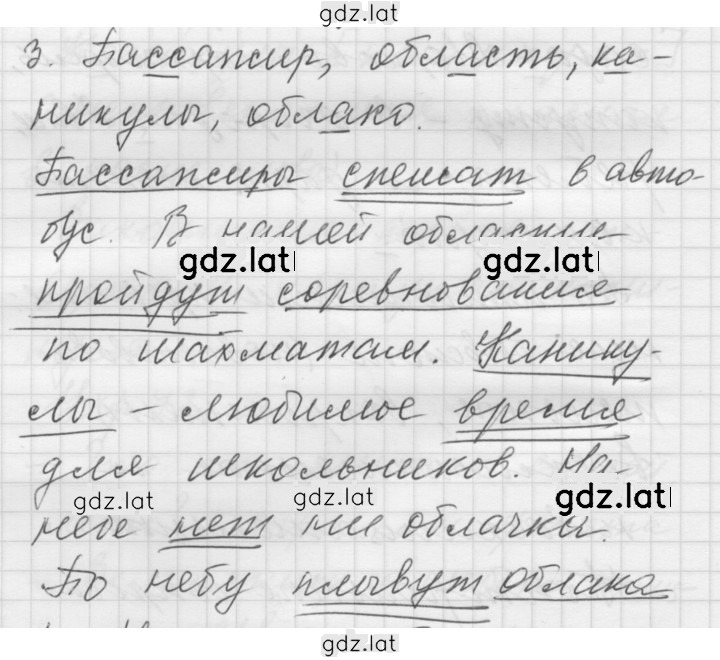 gdz.lat
3. Пассажир, область, ка-
никулы, облако.
Пассажиры спешат в авто-
бус. В нашей области
gdz.lat gdz.lat
пройдут соревнования
по шахматам. Канику-
лы – любимое время
для школьников. На
gdz.lat gdz.lat gdz.lat
небе нет ни облачка.
По небу плывут облака
gdz.lat